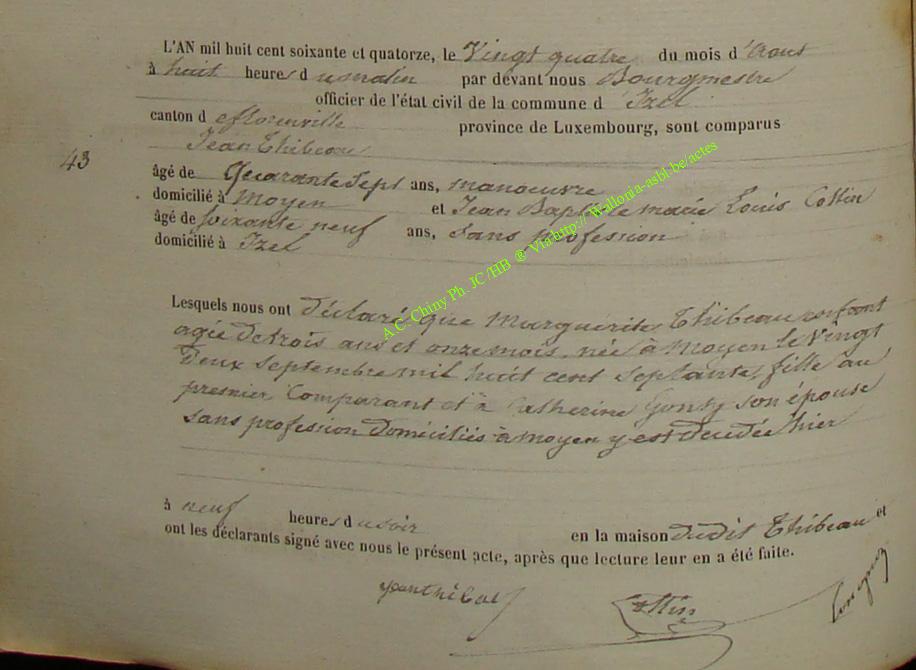 L'AN mil huit cent soixante et quatorze, le Vingt quatre du mois d'Aout
à huit heures du matin par devant nous Bourgmestre
officier de l'état civil de la commune d'Izel
canton de florenville province de Luxembourg, sont comparus
Jean Thibeau
43
âgé de Quarante Sept ans, manoeuvre
domicilié à Moyen et Jean Baptiste marie Louis Collin
âgé de soixante neuf ans, Sans profession
domicilié à Izel
A.C. Chiny Ph. JC/HB @ Via http://Wallonia-asbl.be/actes
Lesquels nous ont déclaré que Marguérite Thibeau enfant
agée de trois ans et onze mois, née à Moyen le Vingt
Deux Septembre mil huit cent Septante, fille au
premier Comparant et à Catherine son épouse
sans profession Domiciliés à moyen y est décédée hier
à neuf heures du soir en la maison dudit Thibeau et
ont les déclarants signé avec nous le présent acte, après que lecture leur en a été faite.